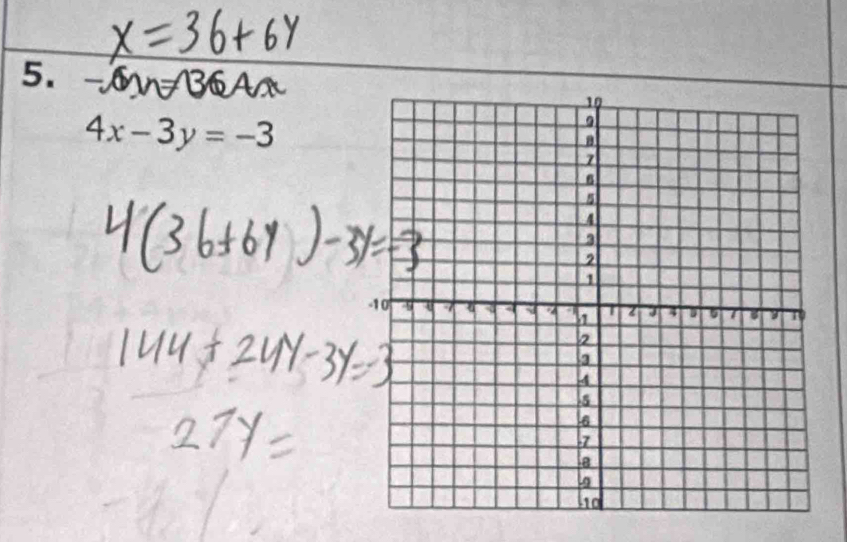 x = 36 + 6y
5.
4x - 3y = -3
4(36 + 6y) - 3y = -3
144 + 24y - 3y = -3
27y =
10
9
8
7
6
5
4
3
2
1
-10 -9 -8 -7 -6 -5 -4 -3 -2 1 2 3 4 5 6 7 8 9 10
-1
-2
-3
-4
-5
-6
-7
-8
-9
-10